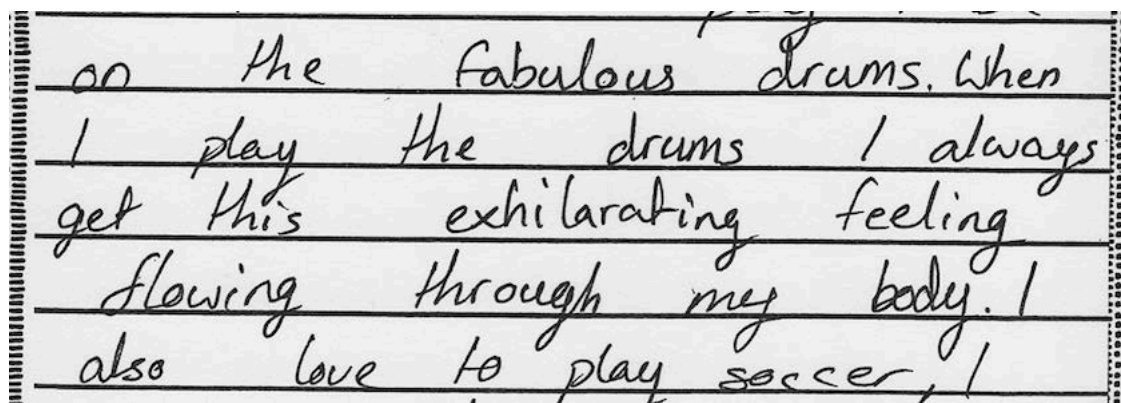 on the fabulous drums. When
I play the drums I always
get this exhilarating feeling
flowing through my body. I
also love to play soccer, I